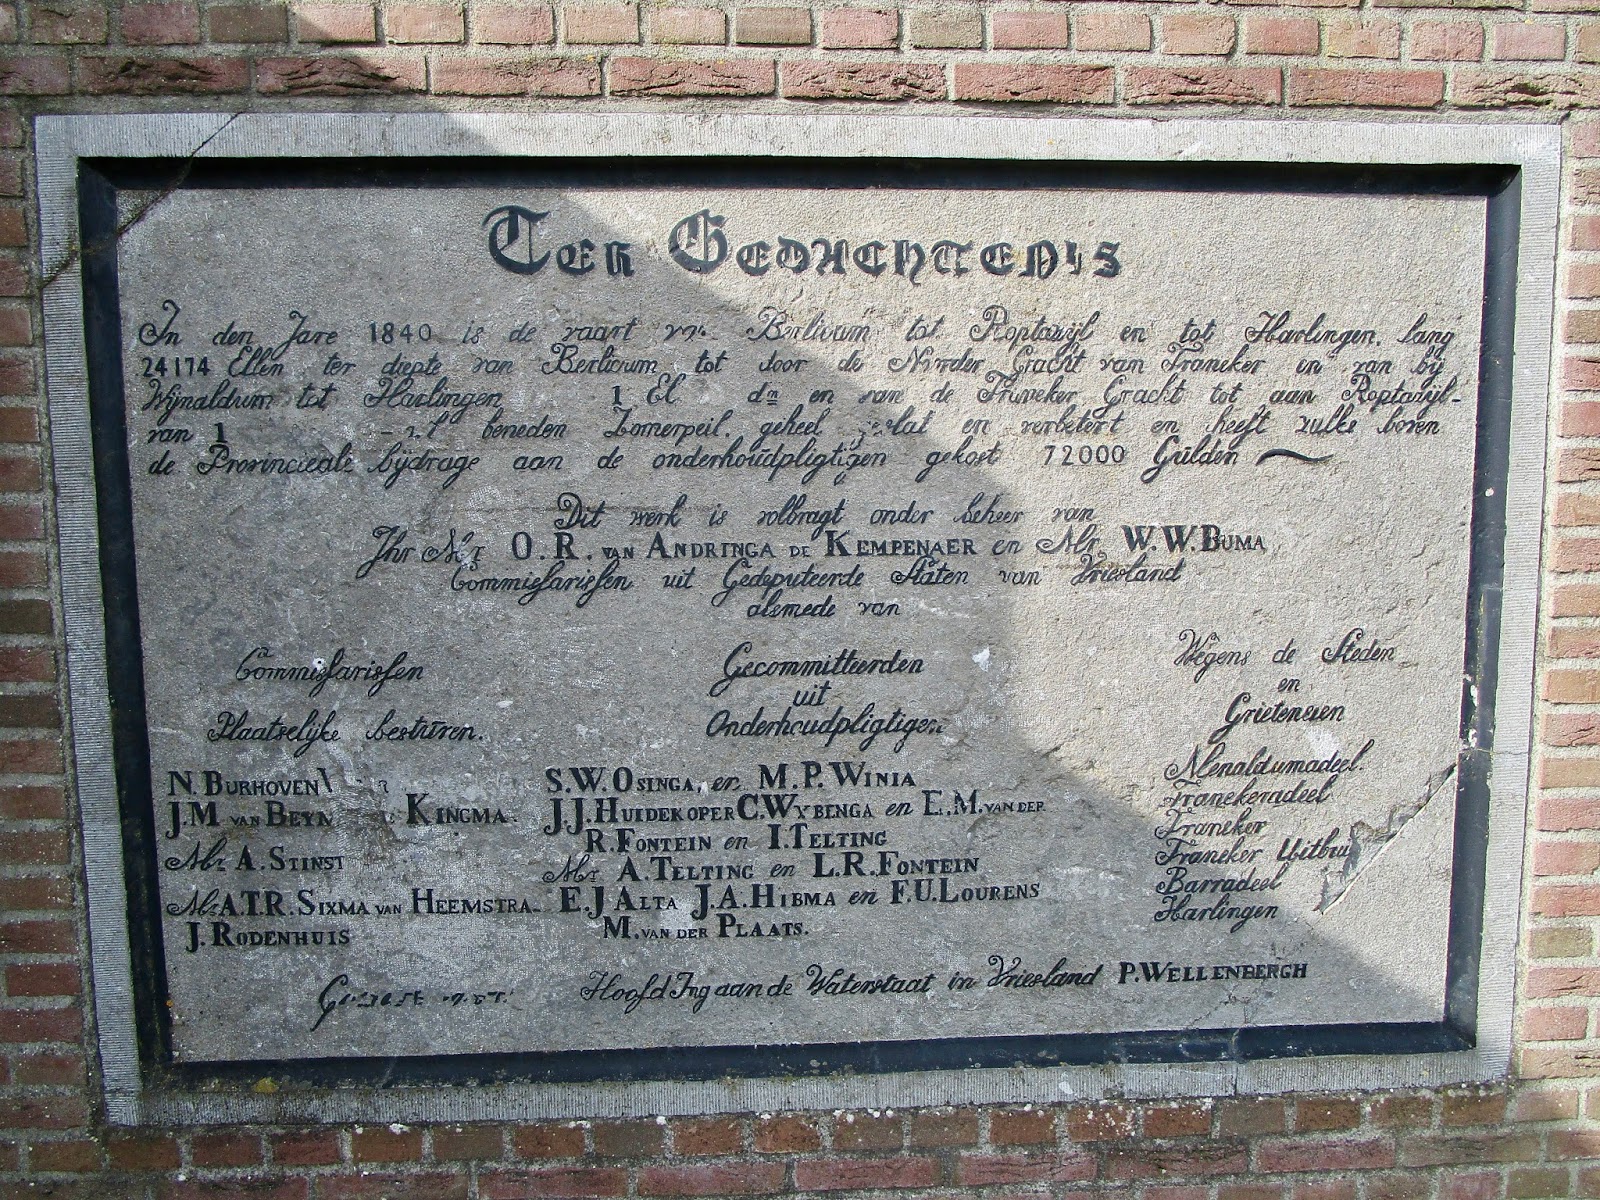 Ter Gedachtenis
In den Jare 1840 is de vaart van Berlicum tot Roptazijl en tot Harlingen, lang
24174 Ellen ter diepte van Berlicum tot door de Noorder Gracht van Franeker en van bij
Wijnaldum tot Harlingen 1 El dm en van de Franeker Gracht tot aan Roptazijl-
van 1 beneden Zomerpeil, geheel en verbetert en heeft zulks boven
de Provincieale bijdrage aan de onderhoudpligtigen gekost 72000 Gulden
Dit werk is volbragt onder beheer van
Jhr Mr O.R. van Andringa de Kempenaer en Mr. W.W. Buma
Commissarissen uit Gedeputeerde Staten van Vriesland
alsmede van
Commissarissen
Plaatselijke bestüren.
Gecommitteerden
uit
Onderhoudpligtigen
Wegens de Steden
en
Grieteneien
N. Burhoven S.W. Osinga, en M.P. Winia Menaldumadeel.
J.M van Beyma Kingma. J.J. Huidekoper C. Wybenga en E.M. van der Franekeradeel
R. Fontein en I. Telting Franeker
Mr A. Stinst Mr A. Telting en L.R. Fontein Franeker Uitbu
Mr A.T.R. Sixma van Heemstra E.J Alta J.A. Hibma en F.U. Lourens Barradeel
J. Rodenhuis M. van der Plaats. Harlingen
Hoofd Ing aan de Waterstaat in Vriesland P. Wellenbergh